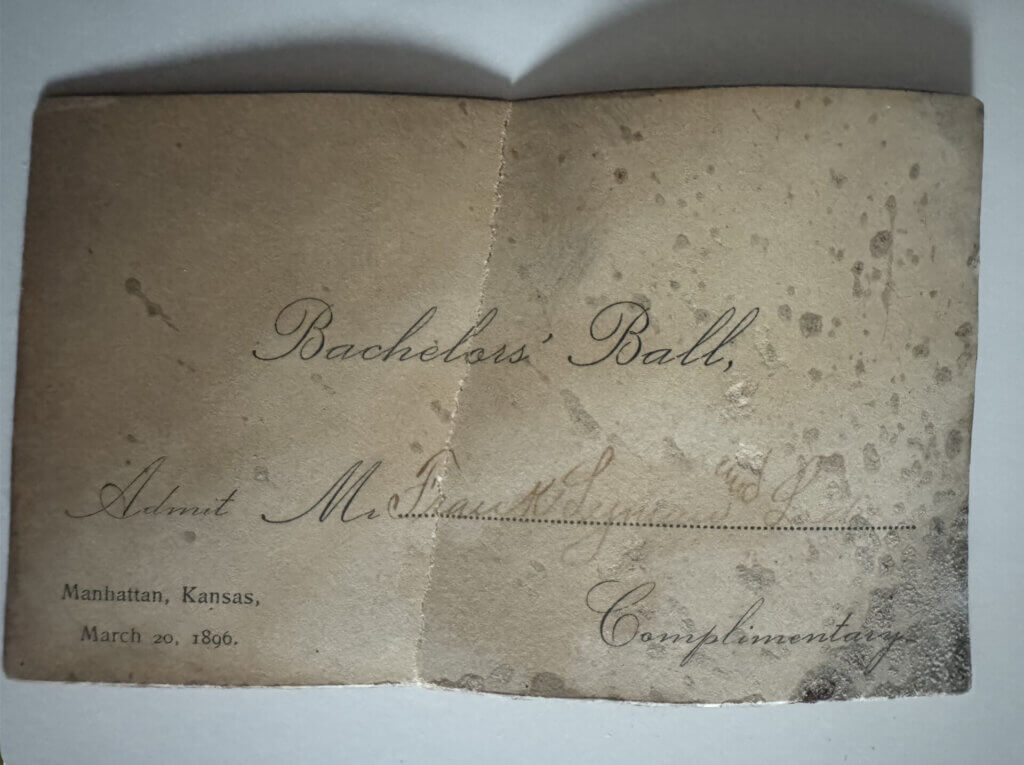 Bachelors' Ball,
Admit Mr Frank and
Manhattan, Kansas,
March 20, 1896.
Complimentary.